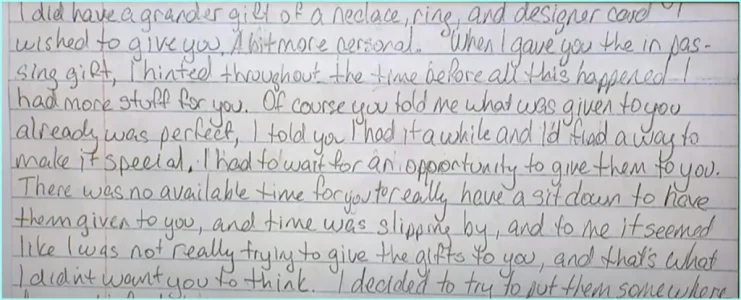 I did have a grander gift of a neclace, ring, and designer card I
wished to give you. A bit more personal. When I gave you the in pas-
sing gift, I hinted throughout the time before all this happened I
had more stuff for you. Of course you told me what was given to you
already was perfect, I told you I had it awhile and I'd find a way to
make it special, I had to wait for an opportunity to give them to you.
There was no available time for you to really have a sit down to have
them given to you, and time was slipping by, and to me it seemed
like I was not really trying to give the gifts to you, and that's what
I didn't want you to think. I decided to try to put them somewhere